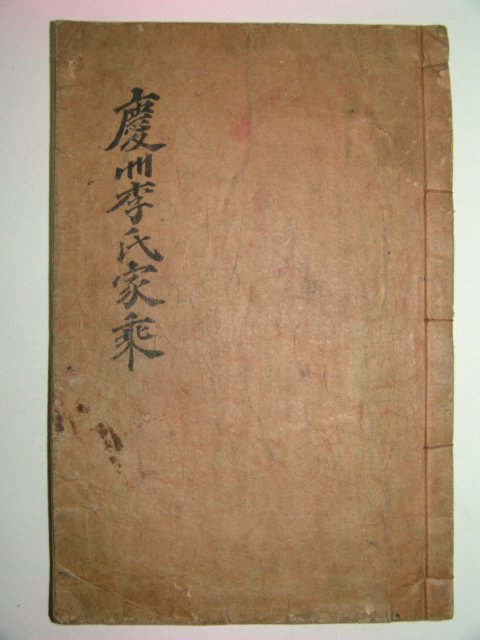 慶州李氏家乘